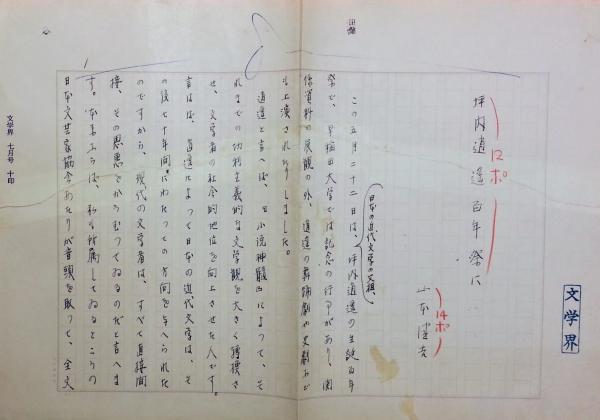 坪内逍遥百年祭に
12ポ
山本健吉
14ポ
文学界
この五月二十二日は、坪内逍遥の生誕百年
日本の近代文学の父祖、
祭で、早稲田大学では記念の行事があり、関
係資料の展観の外、逍遥の舞踊劇や史劇など
も上演されたりしました。
逍遥と言へば、「小説神髄」によって、そ
れまでの功利主義的な文学観を大きく転換さ
せ、文学者の社会的地位を向上させた人です。
言はば、逍遥によって日本の近代文学は、そ
の後七十年間にわたっての方向を与へられた
のですから、現代の文学者は、すべて直接間
接、その恩恵をかうむってゐるのだと言へま
す。本来ならば、私も所属してゐるところの
日本文芸家協会あたりが音頭を取って、全文
1
文学界 七月号 十印